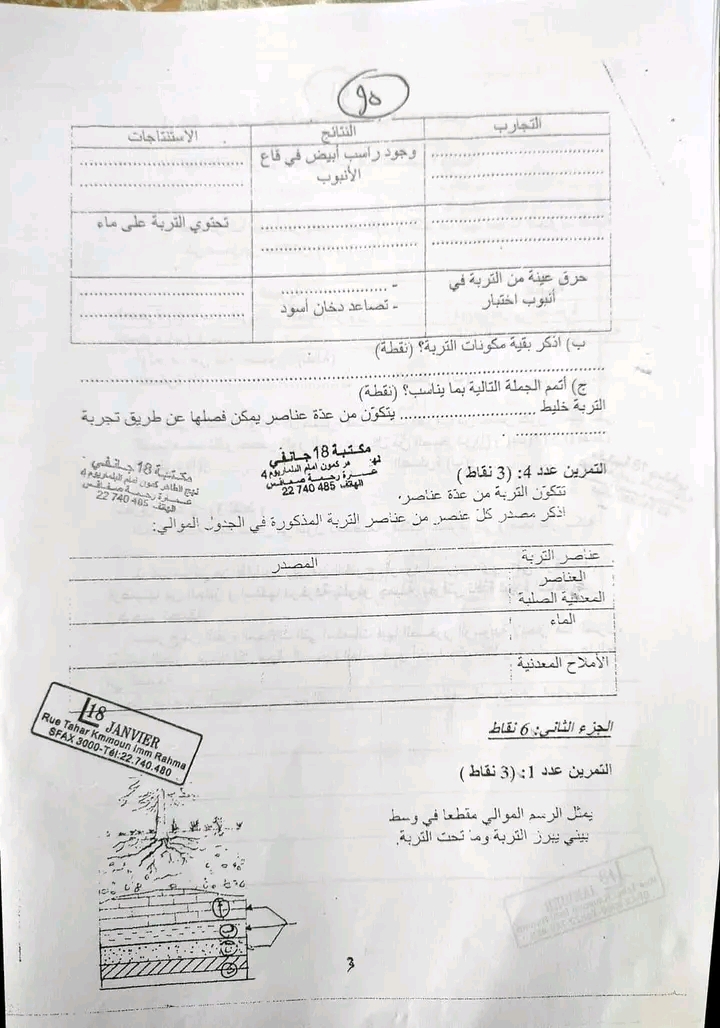 90
التجارب النتائج الاستنتاجات
................................ وجود راسب أبيض في قاع الأنبوب ................................
................................ ................................ تحتوي التربة على ماء
حرق عينة من التربة في أنبوب اختبار - .................... - تصاعد دخان أسود ................................
ب) اذكر بقية مكونات التربة؟ (نقطة)
................................................................
ج) أتمم الجملة التالية بما يناسب؟ (نقطة)
التربة خليط .................... يتكوّن من عدّة عناصر يمكن فصلها عن طريق تجربة
................................................................
مكتبة 18 جانفي
عمارة رحمة صفاقس
الهاتف 22 740 485
مكتبة 18 جانفي
نهج الطاهر كمون امام البلماريوم 4
عمارة رحمة صفاقس
الهاتف 22 740 485
التمرين عدد 4: (3 نقاط)
تتكوّن التربة من عدّة عناصر.
اذكر مصدر كلّ عنصر من عناصر التربة المذكورة في الجدول الموالي:
عناصر التربة المصدر
العناصر
المعدنية الصلبة
الماء
الأملاح المعدنية
18 JANVIER
Rue Tahar Kmmoun Imm Rahma
SFAX 3000-Tél:22.740.480
الجزء الثاني: 6 نقاط
التمرين عدد 1: (3 نقاط)
يمثل الرسم الموالي مقطعا في وسط
بيئي يبرز التربة وما تحت التربة.
3